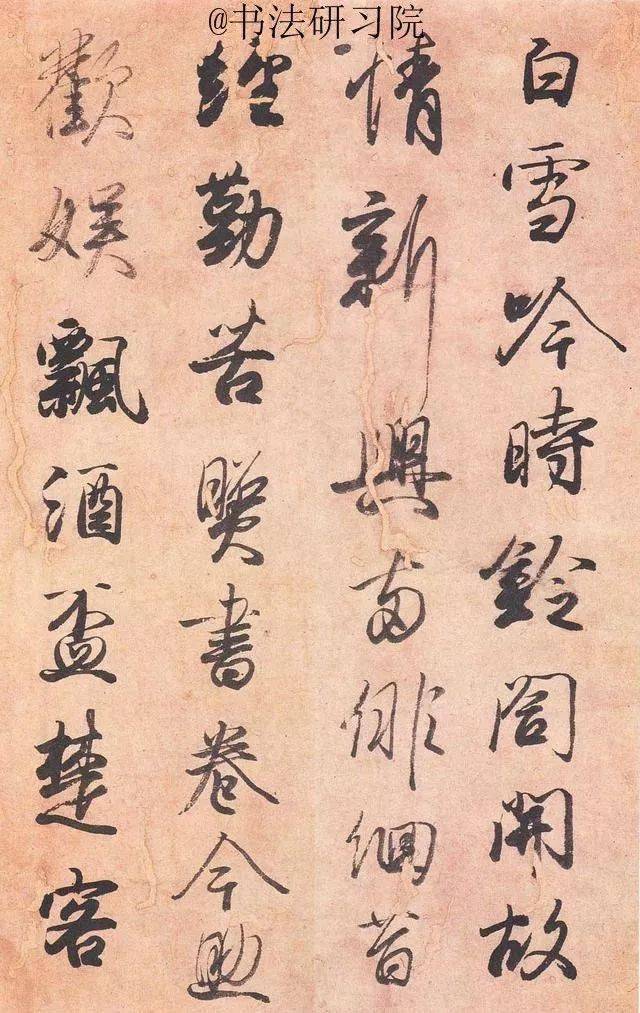 @书法研习院
白雪吟時鈴閤開故
情新興兩俳佪昔
經勤苦照書卷今助
歡娛飄酒盃楚客